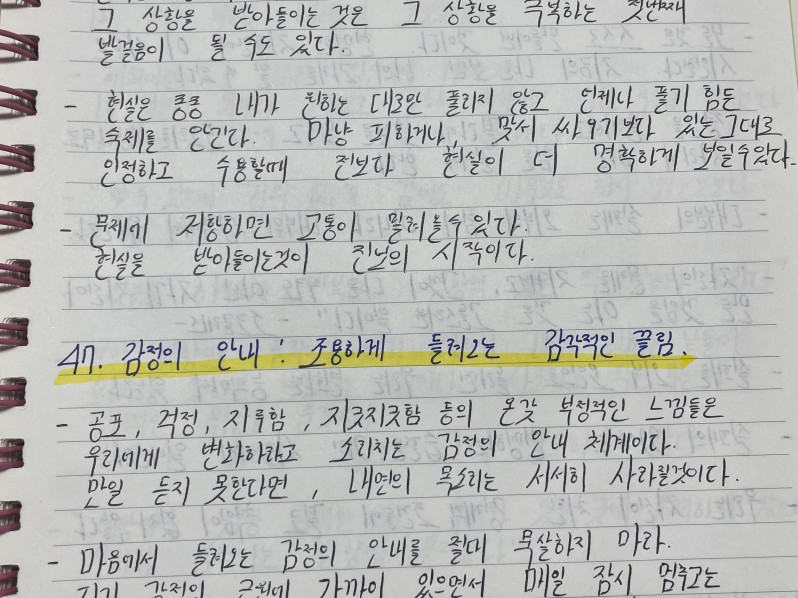 그 상황을 받아들이는 것은 그 상황을 극복하는 첫번째
발걸음이 될 수도 있다.
- 현실은 종종 내가 원하는 대로만 풀리지 않고 언제나 풀기 힘든
숙제를 안긴다. 마냥 피하거나, 맞서 싸우기보다 있는그대로
인정하고 수용할때 전보다 현실이 더 명확하게 보일수있다.
- 문제에 저항하면 고통이 밀려올수있다.
현실을 받아들이는것이 진보의 시작이다.
47. 감정의 안내 : 조용하게 들려오는 감각적인 끌림.
- 공포, 걱정, 지루함, 지긋지긋함 등의 온갖 부정적인 느낌들은
우리에게 변화하라고 소리치는 감정의 안내 체계이다.
만일 듣지 못한다면, 내면의 목소리는 서서히 사라질것이다.
- 마음에서 들려오는 감정의 안내를 절대 무살하지 마라.
감정의 가까이 있으면서 매일 잠시 멈추고는